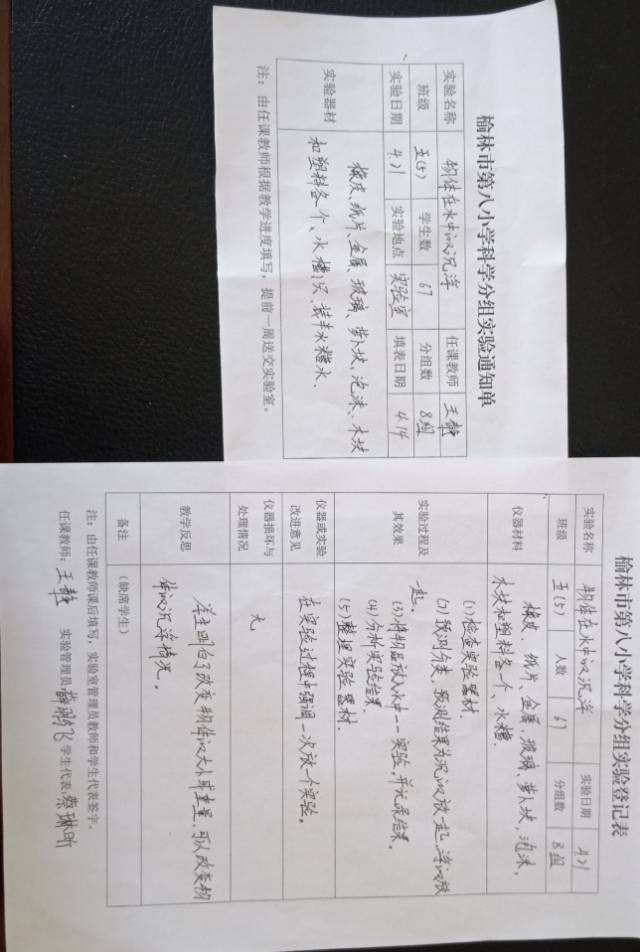 榆林市第八小学科学分组实验通知单
实验名称 物体在水中的沉浮 任课教师 王静
班级 五(5) 学生数 67 分组数 8组
实验日期 4.21 实验地点 实验室 填表日期 4.14
实验器材 橡皮、纸片、金属、玻璃、萝卜块、泡沫、木块
和塑料各一个、水槽1只、装半水槽水.
注：由任课教师根据教学进度填写，提前一周送交实验室。
榆林市第八小学科学分组实验登记表
实验名称 物体在水中的沉浮 实验日期 4.21
班级 五(5) 人数 67 分组数 8组
仪器材料 橡皮、纸片、金属、玻璃、萝卜块、泡沫、
木块和塑料各一个、水槽.
实验过程及其效果 (1)检查实验器材.
(2)预测分类,预测结果为沉的放一起,浮的放
一起.
(3)将物品放入水中一一实验,并记录结果.
(4)分析实验结果.
(5)整理实验器材.
仪器或实验改进意见 在实验过程中强调一次放一个实验。
仪器损坏与处理情况 无
教学反思 学生明白了改变物体的大小或重量,可以改变物
体的沉浮情况。
备注 (缺席学生)
注：由任课教师课后填写，实验室管理员教师和学生代表签字。
任课教师：王静 实验管理员：薛鹏飞 学生代表：蔡琳昕